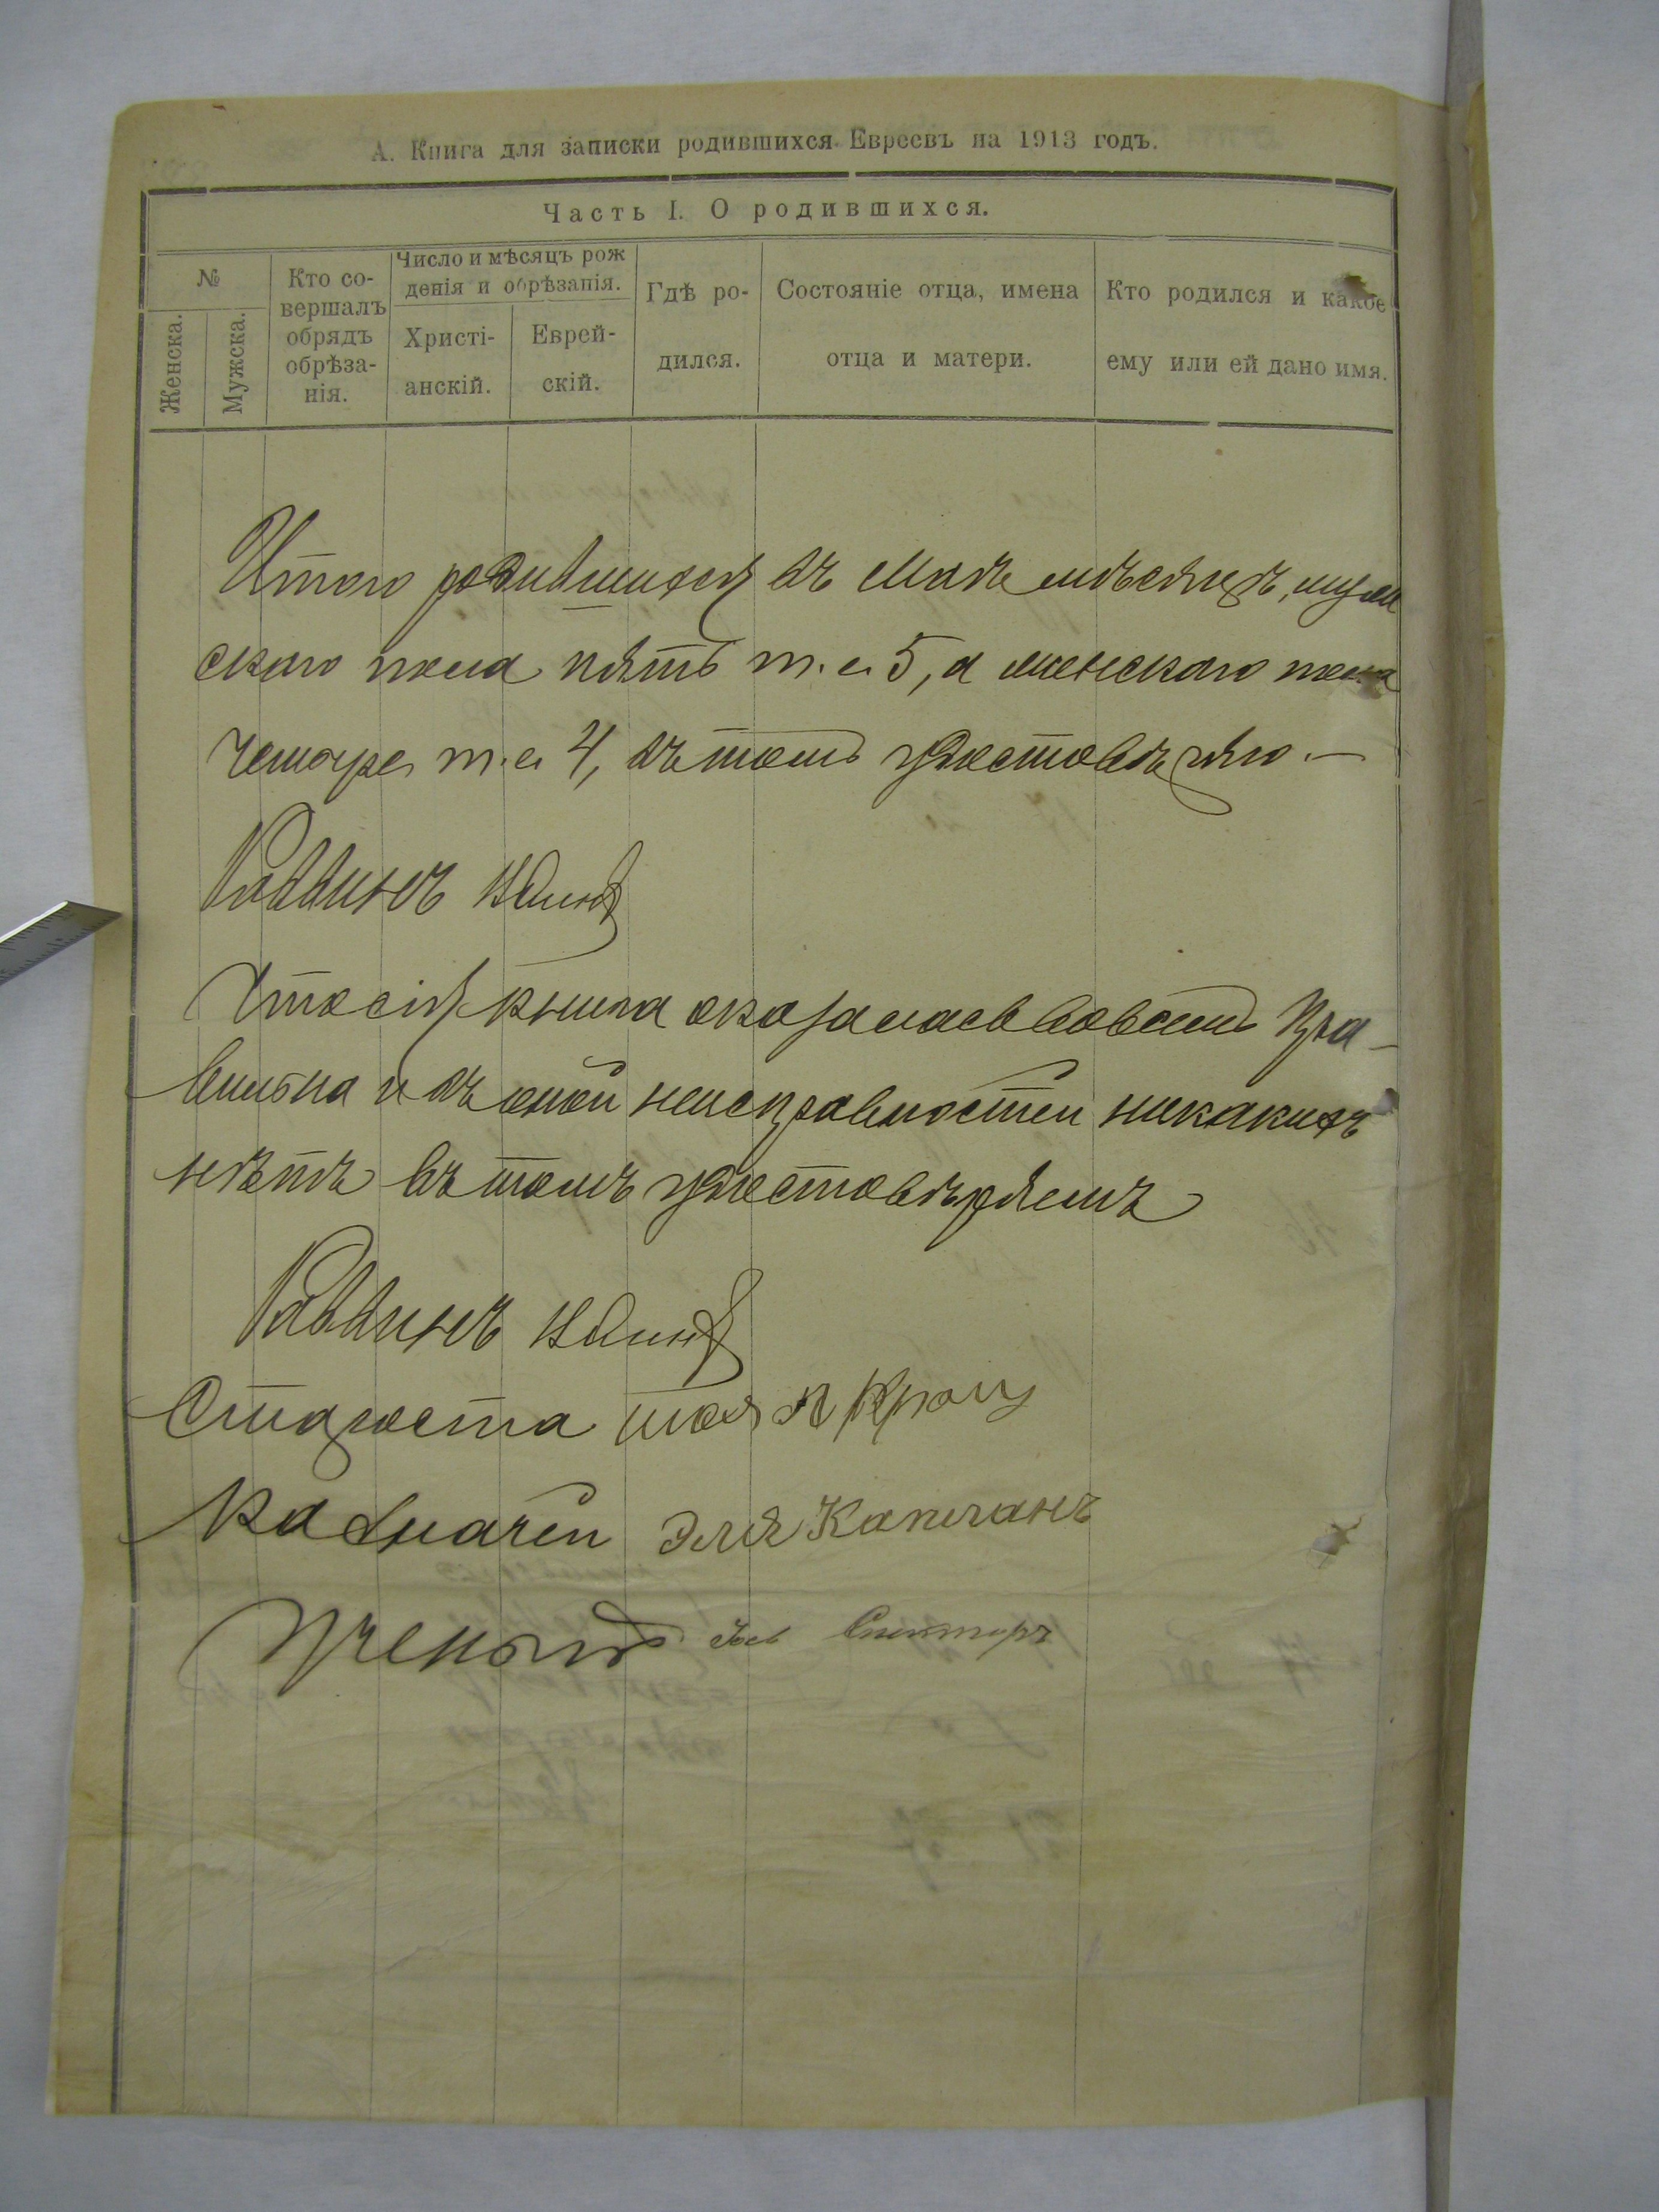 А. Книга для записки родившихся Евреевъ на 1913 годъ.
Часть I. О родившихся.
№
Женска.
Мужска.
Кто со-
вершалъ
обрядъ
обрѣза-
нія.
Число и мѣсяцъ рож
денія и обрѣзанія.
Христі-
анскій.
Еврей-
скій.
Гдѣ ро-
дился.
Состояніе отца, имена
отца и матери.
Кто родился и какое
ему или ей дано имя.
Итого родившихся въ Маѣ мѣсяцѣ, муж
скаго пола пять т. е. 5, а женскаго пола
четыре т. е. 4, въ томъ удостовѣряю. —
Раввинъ
Что сія книга оказалась вовсемъ пра-
вильна и въ оной неисправностей никакихъ
нѣтъ въ томъ удостовѣряемъ
Раввинъ
Староста
Казначей Эля Капланъ
Ученый Спекторъ